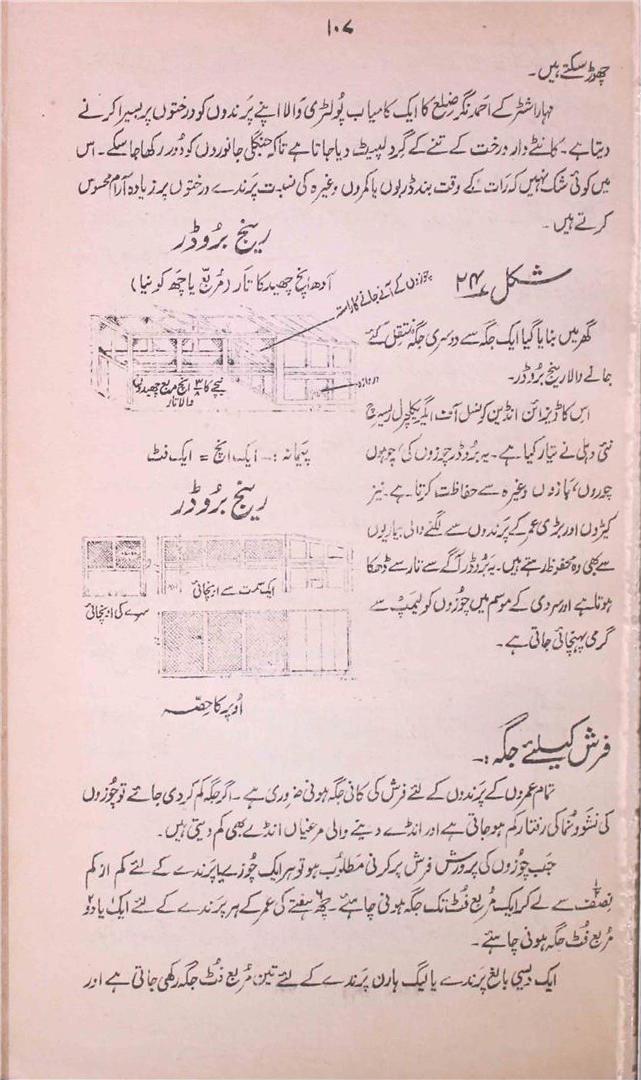 ۱۰۷
چھوڑ سکتے ہیں۔
مہاراشٹر کے احمد نگر ضلع کا ایک کامیاب پولٹری والا اپنے پرندوں کو درختوں پر بسیرا کرنے
دیتا ہے۔ کانٹے دار درخت کے تنے کے گرد لپیٹ دیا جاتا ہے تاکہ جنگلی جانوروں کو دور رکھا جا سکے۔ اس
میں کوئی شک نہیں کہ رات کے وقت بند ڈربوں یا کمروں وغیرہ کی نسبت پرندے درختوں پر زیادہ آرام محسوس
کرتے ہیں۔
رینج بروڈر
شکل ۲۴
آدھ انچ چھید کا تار (مربع یا چھ کونیا)
چوزوں کے آنے جانے کا راستہ
نیچے کا ۳/۸ انچ مربع چھیدوں
والا تار
دروازہ
گھر میں بنایا گیا ایک جگہ سے دوسری جگہ منتقل کئے
جانے والا رینج بروڈر۔
اس کا ڈیزائن انڈین کونسل آف ایگریکلچرل ریسرچ
نئی دہلی نے تیار کیا ہے۔ یہ بروڈر چوزوں کی، چوہوں
چوروں، بازوں وغیرہ سے حفاظت کرتا ہے۔ نیز
کیڑوں اور بڑی عمر کے پرندوں سے لگنے والی بیماریوں
سے بھی وہ محفوظ رہتے ہیں۔ یہ بروڈر آگے سے تار سے ڈھکا
ہوتا ہے اور سردی کے موسم میں چوزوں کو لیمپ سے
گرمی پہنچائی جاتی ہے۔
پیمانہ :۔ ایک انچ = ایک فٹ
رینج بروڈر
ایک سمت سے اونچائی
سرے کی اونچائی
اوپر کا حصہ
فرش کیلئے جگہ :۔
تمام عمروں کے پرندوں کے لئے فرش کی کافی جگہ ہونی ضروری ہے۔ اگر جگہ کم کر دی جائے تو چوزوں
کی نشوونما کی رفتار کم ہو جاتی ہے اور انڈے دینے والی مرغیاں انڈے بھی کم دیتی ہیں۔
جب چوزوں کی پرورش فرش پر کرنی مطلوب ہو تو ہر ایک چوزے یا پرندے کے لئے کم از کم
نصف ۱/۲ سے لے کر ایک مربع فٹ تک جگہ ہونی چاہئے۔ چھ ۶ ہفتے کی عمر کے ہر پرندے کے لئے ایک یا دو ۲
مربع فٹ جگہ ہونی چاہئے۔
ایک دیسی بالغ پرندے یا لیگ ہارن پرندے کے لئے تین مربع فٹ جگہ رکھی جاتی ہے اور